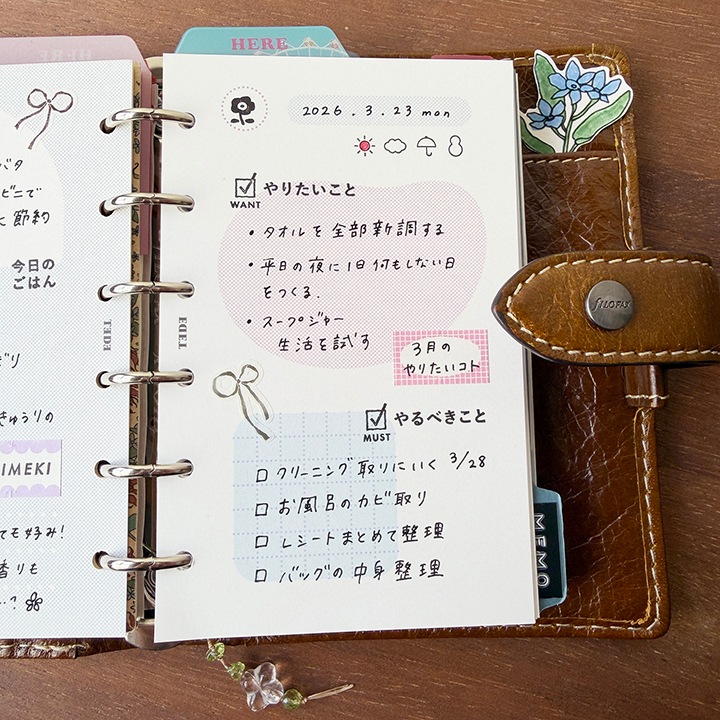 HERE
HERE
バタ
ビニで
に節約
今日の
ごはん
ぎり
きゅうりの
IMEKI
ても好み!
香りも
…?
TEDE
2026.3.23 mon
やりたいこと
WANT
・タオルを全部新調する
・平日の夜に1日何もしない日
をつくる.
・スープジャー
生活を試す
3月の
やりたいコト
やるべきこと
MUST
クリーニング取りにいく 3/28
お風呂のカビ取り
レシートまとめて整理
バッグの中身整理
TEDE
MEMO
filofax